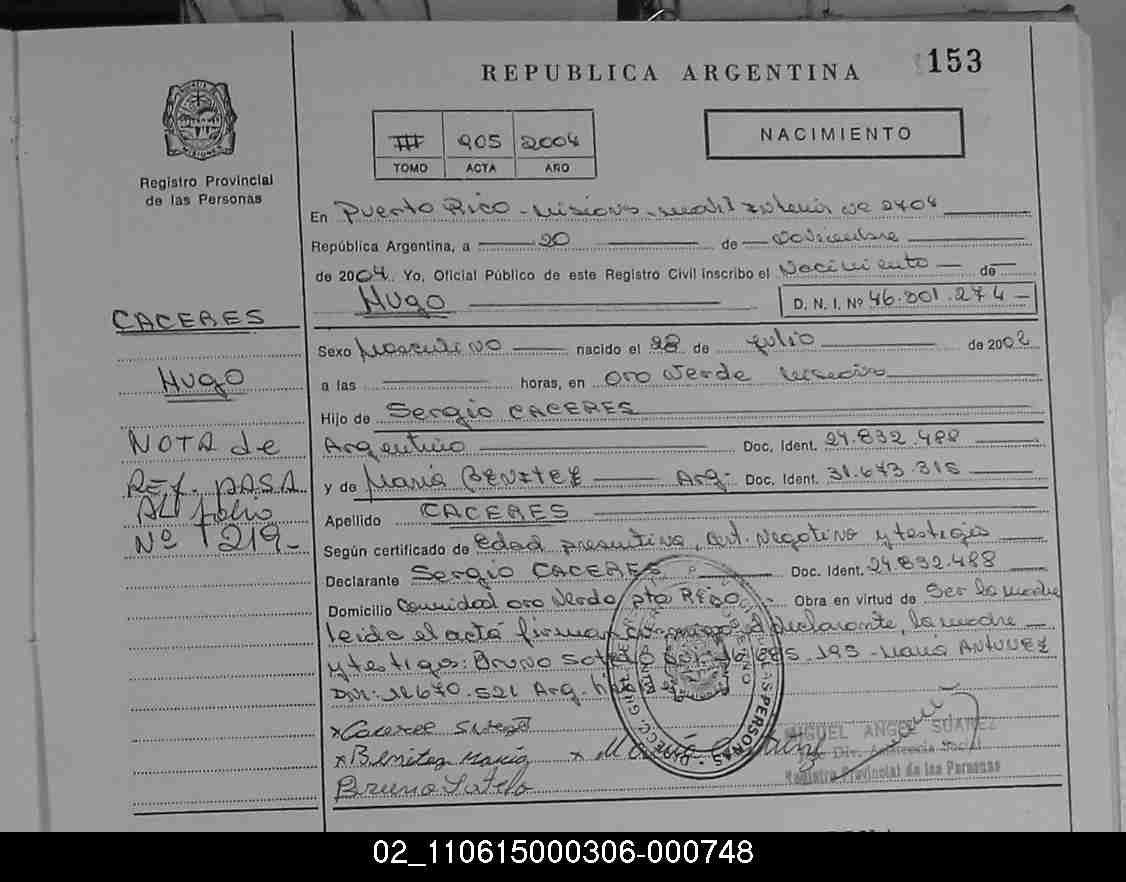 REPUBLICA ARGENTINA
153
Registro Provincial
de las Personas
III 905 2004
TOMO ACTA AÑO
NACIMIENTO
En Puerto Rico - Misiones
República Argentina, a 20 de Noviembre
de 2004. Yo, Oficial Público de este Registro Civil inscribo el Nacimiento de
Hugo D. N. I. Nº
CACERES
Hugo
NOTA de
Ref. PASA
AL folio
Nº 1219-
Sexo Masculino nacido el 28 de Julio de 2002
a las horas, en Oro Verde Misiones
Hijo de Sergio CACERES
Argentino Doc. Ident.
y de Maria BENITEZ Arg: Doc. Ident.
Apellido CACERES
Según certificado de Edad presuntiva, Cert. Negativo y testigos
Declarante Sergio CACERES Doc. Ident.
Domicilio Comunidad Oro Verde Pto Rico - Obra en virtud de Ser la madre
leída el acta firman conmigo el declarante, la madre
y testigo: Bruno Sotelo - Maria ANTUNEZ
Arg.
x Caceres
x Benitez Maria x
Bruno Sotelo
MIGUEL ANGEL SUAREZ
Registro Provincial de las Personas
02_110615000306-000748